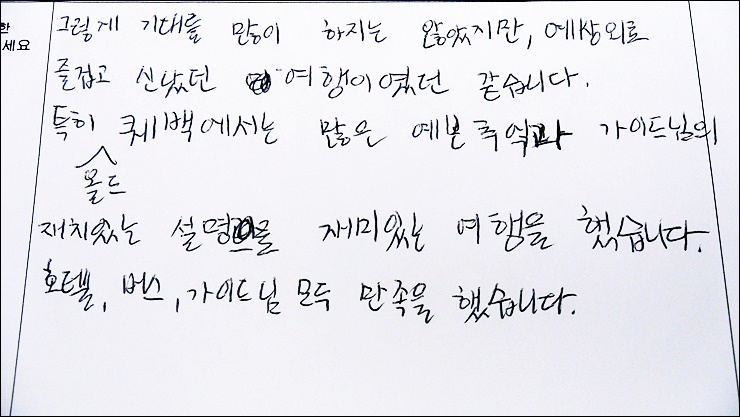 한
세요
그렇게 기대를 많이 하지는 않았지만, 예상외로
즐겁고 신났던 여행이였던 같습니다.
특히 퀘백에서는 많은 예쁜 추억과 가이드님의
올드
재치있는 설명으로 재미있는 여행을 했습니다.
호텔, 버스, 가이드님 모두 만족을 했습니다.